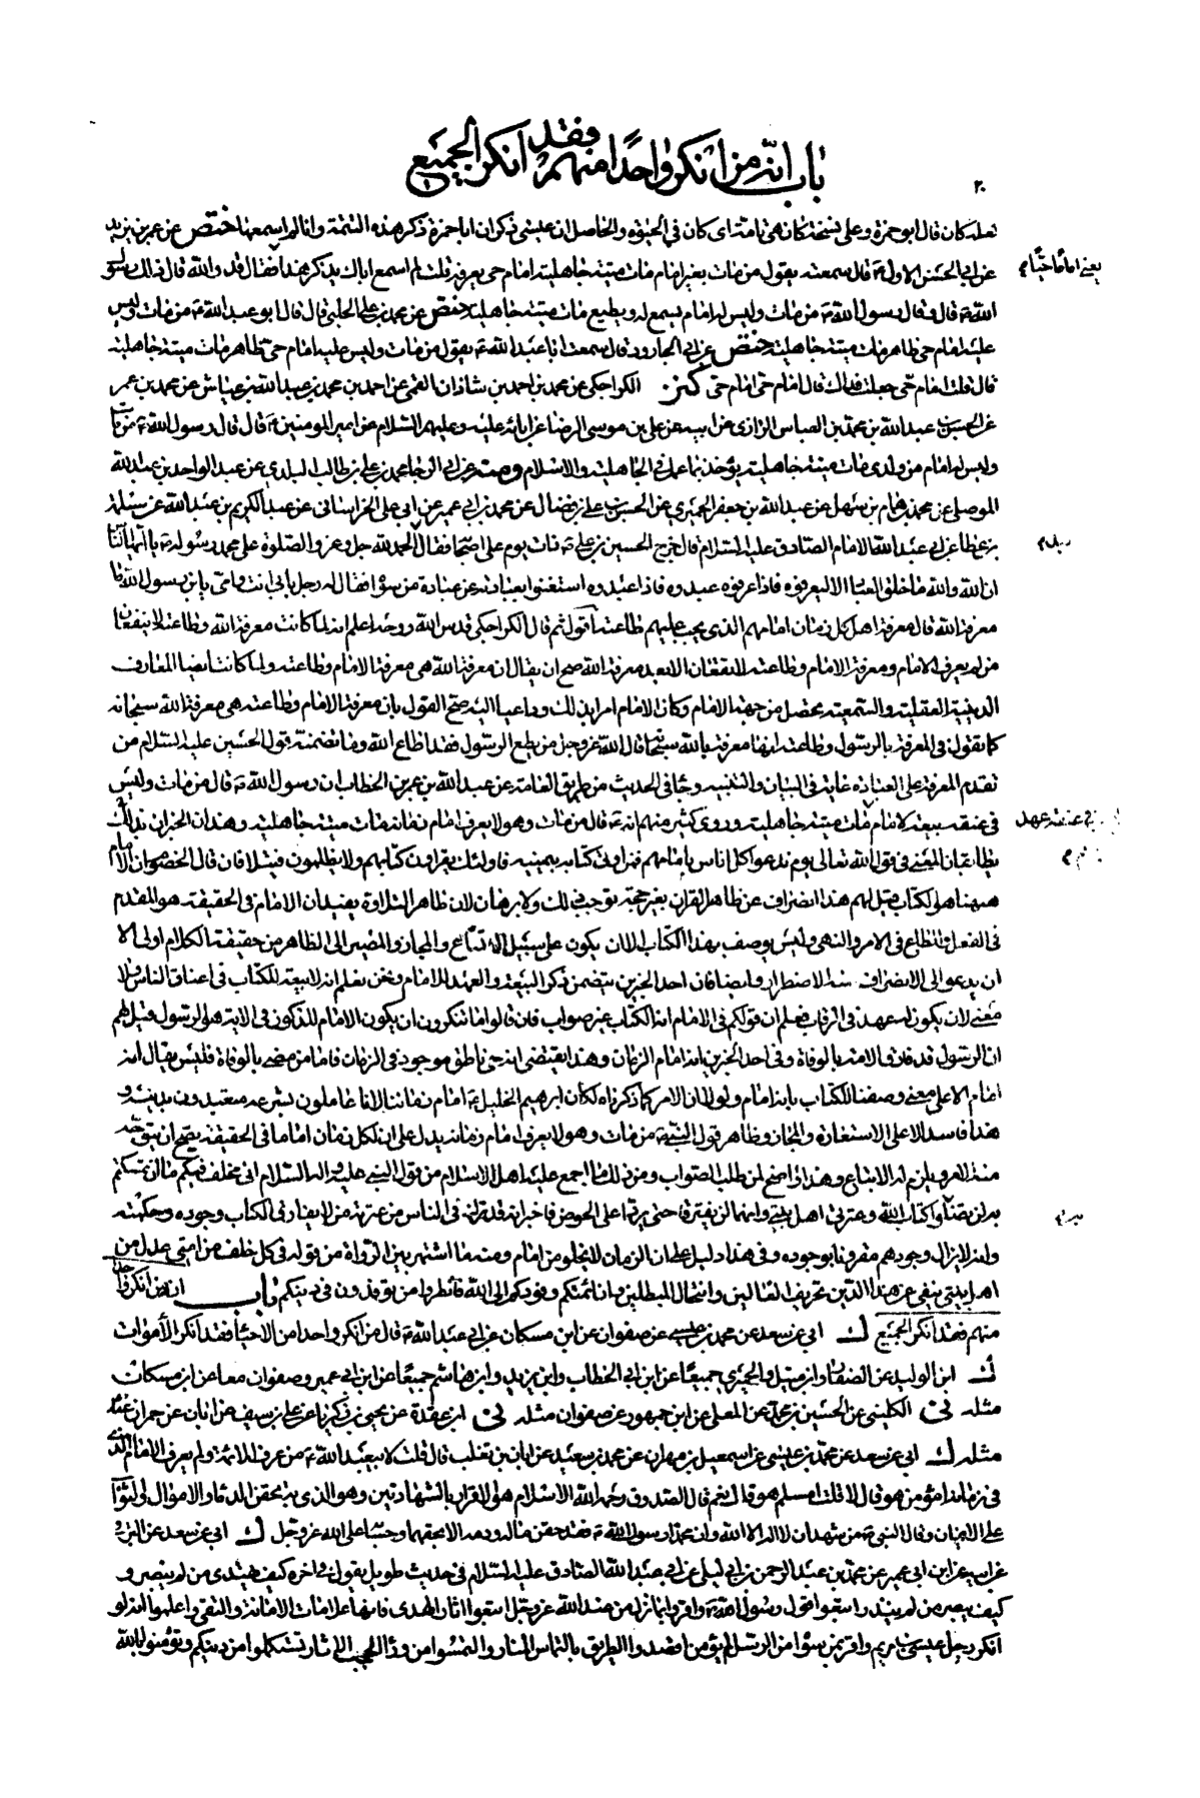 باب انه من انكر واحدا منهم فقد انكر الجميع
٢٠
لعله كان قال ابو حمزة وعلى نسخة كان هي تامة اى كان في الحيوة والحاصل ان عيسى ذكر ان ابا حمزة ذكر هذه التتمة وانا لم اسمعها ختص عن عمر بن يزيد
عن ابي الحسن الاول ع قال سمعته يقول من مات بغير امام مات ميتة جاهلية امام حي يعرفه قلت لم اسمع اباك يذكر هذا فقال قد والله قال ذلك رسول
يعني اماما حيا م
الله ص قال وقال رسول الله ص من مات وليس له امام يسمع له ويطيع مات ميتة جاهلية ختص عن محمد بن علي الحلبي قال قال ابو عبد الله ع من مات وليس
عليه امام حي ظاهر مات ميتة جاهلية ختص عن ابي الجارود قال سمعت ابا عبد الله ع يقول من مات وليس عليه امام حي ظاهر مات ميتة جاهلية
قال قلت امام حي جعلت فداك قال امام حي امام حي كنز الكراجكي عن محمد بن احمد بن شاذان القمي عن احمد بن محمد بن عبد الله بن عياش عن محمد بن عمر
عن الحسن بن عبد الله بن محمد بن العباس الرازى عن ابيه عن علي بن موسى الرضا عن ابائه عليه وعليهم السلام عن امير المومنين ع قال قال رسول الله ص من مات
وليس له امام من ولدى مات ميتة جاهلية يؤخذ بما عمل في الجاهلية والاسلام ومنه عن ابي الرجا محمد بن علي بن طالب البلدي عن عبد الواحد بن عبد الله
الموصلي عن محمد بن همام بن سهل عن عبد الله بن جعفر الحميري عن الحسن بن علي بن فضال عن محمد بن ابي عمير عن ابي علي الخراساني عن عبد الكريم بن عبد الله عن سلمة
بن عطا عن ابي عبد الله الامام الصادق عليه السلام قال خرج الحسين بن علي ع ذات يوم على اصحابه فقال الحمد لله جل وعز والصلوة على محمد رسوله ص يا ايها الناس
ان الله والله ما خلق العباد الا ليعرفوه فاذا عرفوه عبدوه فاذا عبدوه استغنوا بعبادته عن عبادة من سواه فقال له رجل بابي انت وامي يا بن رسول الله ما
معرفة الله قال معرفة اهل كل زمان امامهم الذى يجب عليهم طاعته اقول ثم قال الكراجكي قدس الله روحه اعلم انه لما كانت معرفة الله وطاعته لا ينفعان
من لم يعرف الامام ومعرفة الامام وطاعته لا تنفعان الا بعد معرفة الله صح ان يقال ان معرفة الله هي معرفة الامام وطاعته ولما كانت ايضا المعارف
الدينية العقلية والسمعية يحصل من جهة الامام وكان الامام امرا بذلك وداعيا اليه صح القول بان معرفة الامام وطاعته هي معرفة الله سبحانه
كما نقول في المعرفة بالرسول وطاعته انها معرفة بالله سبحانه قال الله عز وجل من يطع الرسول فقد اطاع الله وما تضمنه قول الحسين عليه السلام من
تقدم المعرفة على العبادة غاية في البيان والتنبيه وجاء في الحديث من طريق العامة عن عبد الله بن عمر بن الخطاب ان رسول الله ص قال من مات وليس
في عنقه بيعة لامام مات ميتة جاهلية وروى كثير منهم انه ع قال من مات وهو لا يعرف امام زمانه مات ميتة جاهلية وهذان الخبران
يطابقان المعنى في قول الله تعالى يوم ندعو كل اناس بامامهم فمن اوتي كتابه بيمينه فاولئك يقرؤن كتابهم ولا يظلمون فتيلا فان قال الخصوم ان الامام
ههنا هو الكتاب قيل لهم هذا انصراف عن ظاهر القران بغير حجة توجب ذلك ولا برهان لان ظاهر التلاوة يفيد ان الامام في الحقيقة هو المقدم
في الفعل والمطاع في الامر والنهي وليس يوصف بهذا الكتاب الا ان يكون على سبيل الاتساع والمجاز والمصير الى الظاهر من حقيقة الكلام اولى الا
ان يدعو الى الانصراف عنه الاضطرار وايضا فان احد الخبرين يتضمن ذكر البيعة والعهد للامام ونحن نعلم انه لا بيعة للكتاب في اعناق الناس ولا
معنى لان يكون له عهد في الرقاب فعلم ان قولكم في الامام انه الكتاب غير صواب فان قالوا ما تنكرون ان يكون الامام المذكور في الاية هو الرسول قيل لهم
ان الرسول قد فارق الامة بالوفاة وفي احد الخبرين انه امام الزمان وهذا يقتضي انه حي ناطق موجود في الزمان فاما من مضى بالوفاة فليس يقال انه
امام الا على معنى وصفنا للكتاب بانه امام ولولا ان الامر كما ذكرناه لكان ابرهيم الخليل ع امام زماننا لانا عاملون بشرعه متعبدون بدينه و
هذا فاسد الا على الاستعارة والمجاز وظاهر قول النبي ص من مات وهو لا يعرف امام زمانه يدل على ان لكل زمان اماما في الحقيقة يصح ان يتوجه
منه الامر ويلزم له الاتباع وهذا واضح لمن طلب الصواب ومن ذلك ما اجمع عليه اهل الاسلام من قول النبي عليه وآله السلام اني مخلف فيكم ما ان تمسكتم
به لن تضلوا كتاب الله وعترتي اهل بيتي وانهما لن يفترقا حتى يردا على الحوض فاخبر انه قد ترك في الناس من عترته من لا يفارق الكتاب وجوده وحكمه
وانه لا يزال وجودهم مقرونا بوجوده وفي هذا دليل على ان الزمان لا يخلو من امام ومنه ما اشتهر بين الرواة من قوله في كل خلف من امتي عدل من
اهل بيتي ينفي عن هذا الدين تحريف الغالين وانتحال المبطلين وان ائمتكم وفودكم الى الله فانظروا من توفدون في دينكم باب انه من انكر واحدا
منهم فقد انكر الجميع ك ابي عن سعد عن محمد بن عيسى عن صفوان عن ابن مسكان عن ابي عبد الله ع قال من انكر واحدا من الاحياء فقد انكر الاموات
ك ابن الوليد عن الصفار وابن متيل والحميري جميعا عن ابن ابي الخطاب وابن يزيد وابن هاشم جميعا عن ابن ابي عمير وصفوان معا عن ابن مسكان
مثله ني الكليني عن الحسين بن محمد عن المعلى عن ابن جمهور عن صفوان مثله ني ابن عقدة عن يحيى بن زكريا عن علي بن سيف عن ابان عن حمران عنه
مثله ك ابي عن سعد عن محمد بن عيسى عن اسمعيل بن مهران عن محمد بن سعيد عن ابان بن تغلب قال قلت لابي عبد الله ع من عرف الائمة ولم يعرف الامام الذي
في زمانه امؤمن هو قال لا قلت امسلم هو قال نعم قال الصدوق رحمه الله الاسلام هو الاقرار بالشهادتين وهو الذى به يحقن الدماء والاموال والثواب
على الايمان وقال النبي ص من شهد ان لا اله الا الله وان محمدا رسول الله ص فقد حقن ماله ودمه الا بحقهما وحسابه على الله عز وجل ك ابي عن سعد عن البرقي
عن ابيه عن ابن ابي عمير عن محمد بن عبد الرحمن بن ابي ليلى عن ابي عبد الله الصادق عليه السلام في حديث طويل يقول في اخره كيف يهتدى من لم يبصر و
كيف يبصر من لم ينذر اتبعوا قول رسول الله ص واقروا بما نزل من عند الله عز وجل اتبعوا اثار الهدى فانها علامات الامانة والتقى واعلموا انه لو
انكر رجل عيسى بن مريم واقر بمن سواه من الرسل لم يؤمن اقصدوا الطريق بالتماس المنار والتمسوا من وراء الحجب الاثار تستكملوا امر دينكم وتؤمنوا بالله